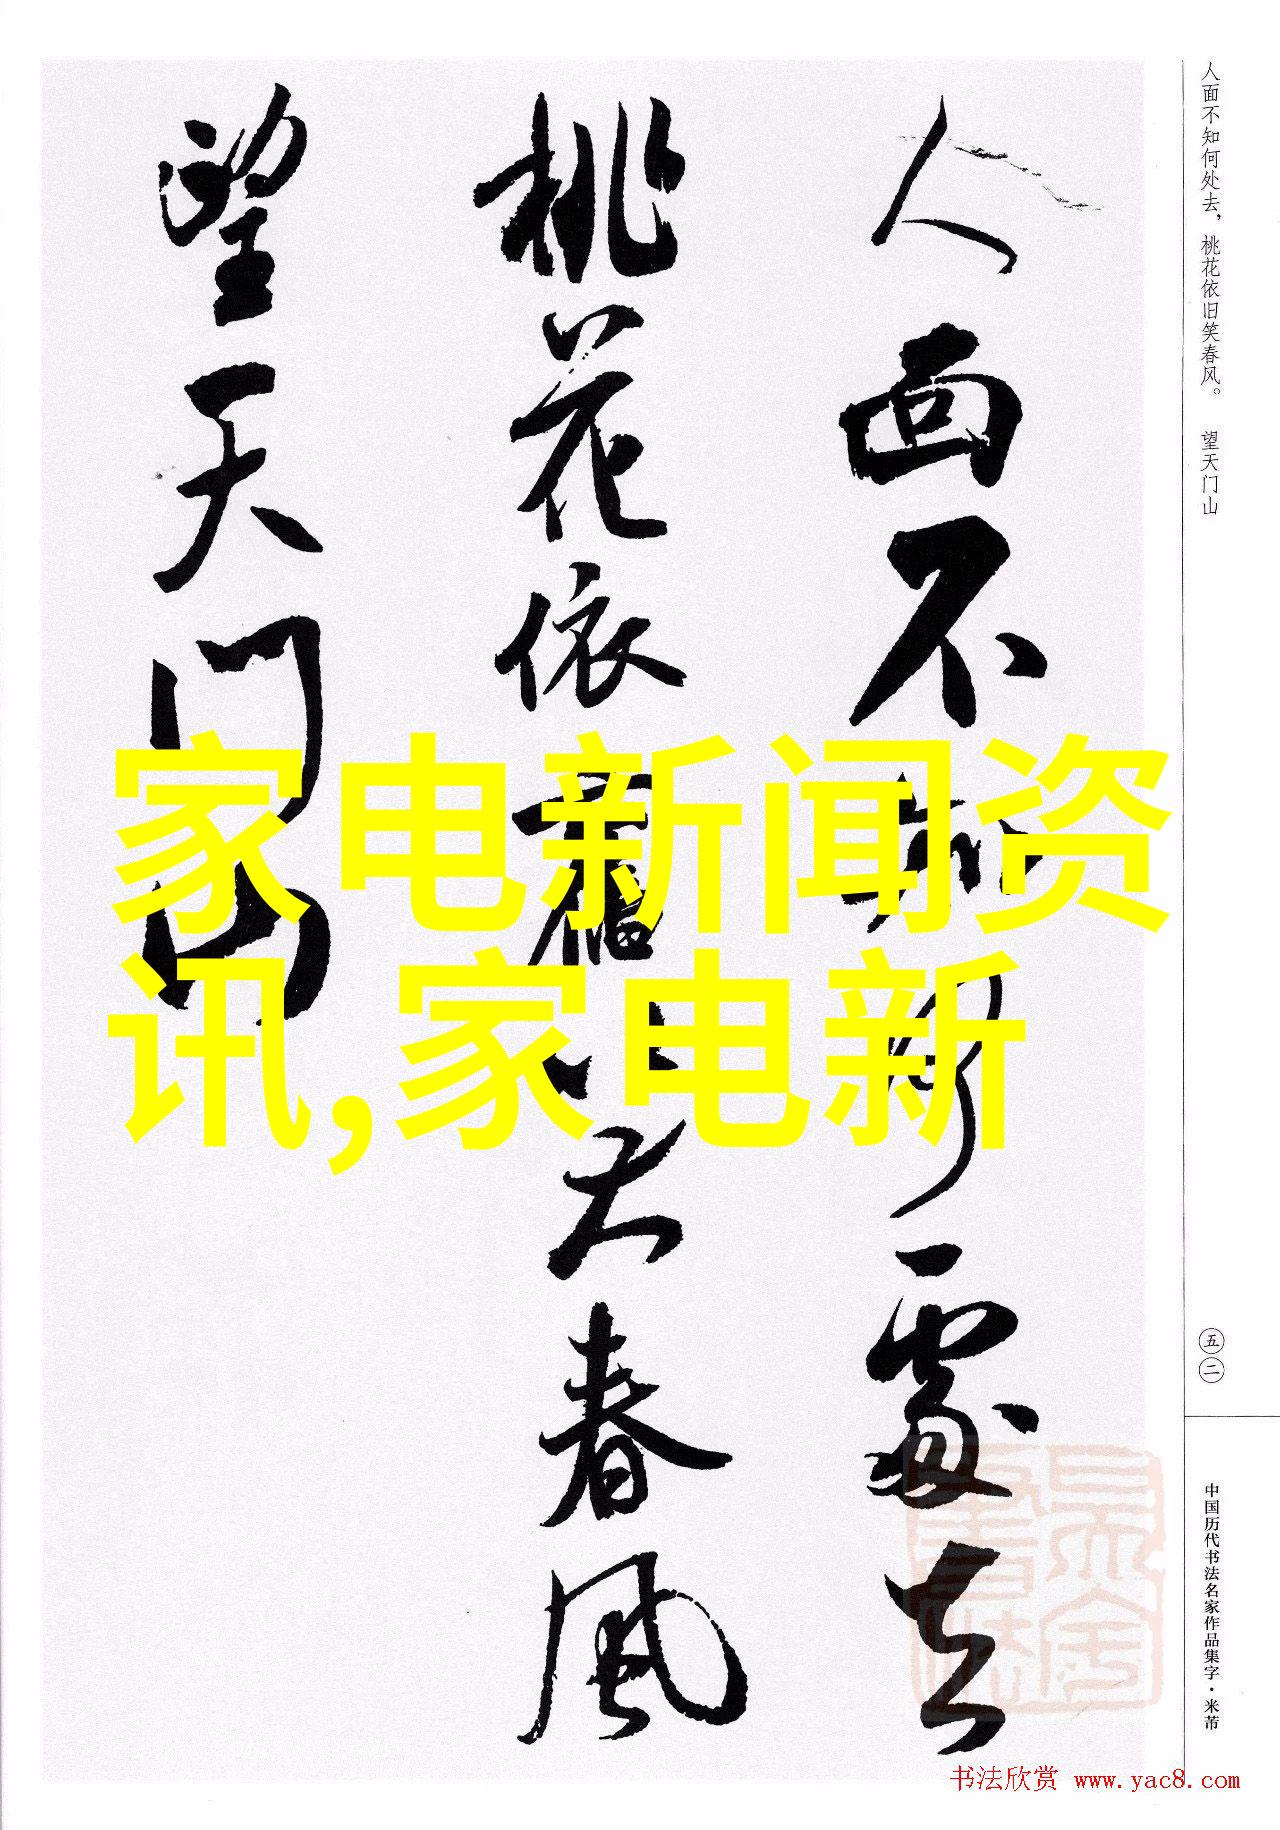 人面不知何处去，桃花依旧笑春风。 望天门山
人面不知何處去
桃花依舊笑春風
望天门山
家电新闻资
讯,家电新
五二
中国历代书法名家作品集字·米芾
书法欣赏 www.yac8.com